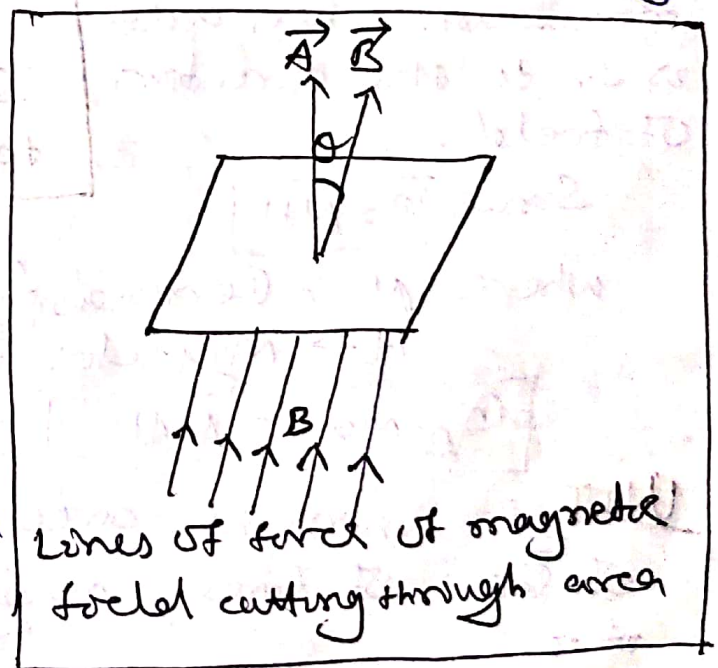 A⃗ B⃗
θ
B
Lines of force of magnetic
field cutting through area